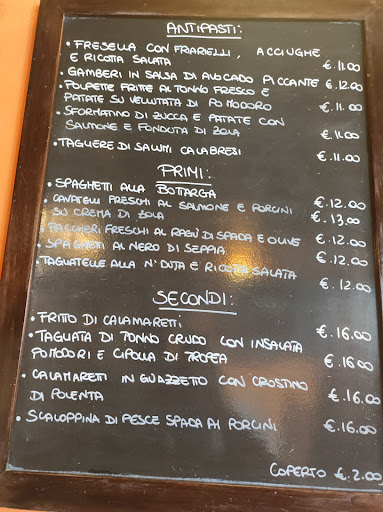 ANTIPASTI:
• FRESELLA CON FRIARIELLI, ACCIUGHE
E RICOTTA SALATA €.11.00
• GAMBERI IN SALSA DI AVOCADO PICCANTE €.12.00
• POLPETTE FRITTE AL TONNO FRESCO E
PATATE SU VELLUTATA DI POMODORO €.11.00
• SFORMATINO DI ZUCCA E PATATE CON
SALMONE E FONDUTA DI ZOLA €.11.00
• TAGLIERE DI SALUMI CALABRESI €.11.00
PRIMI:
• SPAGHETTI ALLA BOTTARGA €.12.00
• CAVATELLI FRESCHI AL SALMONE E PORCINI
SU CREMA DI ZOLA €.13.00
• PACCHERI FRESCHI AL RAGÙ DI SPADA E OLIVE €.12.00
• SPAGHETTI AL NERO DI SEPPIA €.12.00
• TAGLIATELLE ALLA N'DUJA E RICOTTA SALATA €.12.00
SECONDI:
• FRITTO DI CALAMARETTI €.16.00
• TAGLIATA DI TONNO CRUDO CON INSALATA
POMODORI E CIPOLLA DI TROPEA €.16.00
• CALAMARETTI IN GUAZZETTO CON CROSTINO
DI POLENTA €.16.00
• SCALOPPINA DI PESCE SPADA AI PORCINI €.16.00
COPERTO €.2.00